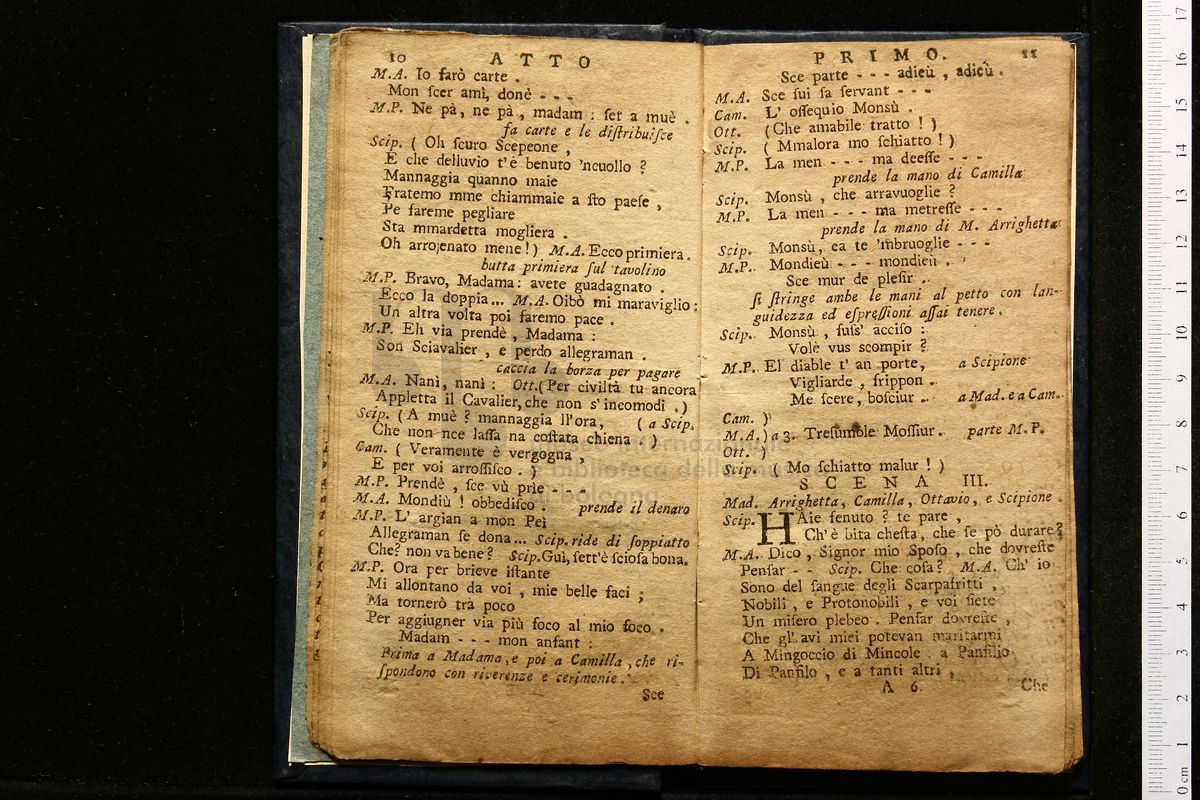 10 ATTO
M.A. Io farò carte .
Mon ſcer amì, donè - - -
M.P. Ne pà, ne pà, madam : ſet a muè .
fa carte e le diſtribuiſce
Scip. ( Oh ſcuro Scepeone ,
E che delluvio t'è benuto 'ncuollo ?
Mannaggia quanno maie
Fratemo mme chiammaie a ſto paeſe ,
Pe fareme pegliare
Sta mmardetta mogliera .
Oh arrojenato mene! ) M.A. Ecco primiera.
butta primiera ſul tavolino
M.P. Bravo, Madama: avete guadagnato .
Ecco la doppia... M.A. Oibò mi maraviglio:
Un altra volta poi faremo pace .
M.P. Eh via prendè , Madama :
Son Sciavalier , e perdo allegraman .
caccia la borza per pagare
M.A. Nanì, nanì : Ott. (Per civiltà tu ancora
Appletta il Cavalier, che non s'incomodi .)
Scip. ( A muè ? mannaggia ll'ora, ( a Scip.
Che non nce laſſa na coſtata chiena . )
Cam. ( Veramente è vergogna ,
E per voi arroſſiſco . )
M.P. Prendè , ſce vù prie - - -
M.A. Mondiù ! obbediſco . prende il denaro
M.P. L' argian a mon Pei
Allegraman ſe dona... Scip. ride di ſoppiatto
Che? non va bene? Scip. Guì, ſett'è ſcioſa bona.
M.P. Ora per brieve iſtante
Mi allontano da voi , mie belle faci ;
Ma tornerò trà poco
Per aggiugner via più foco al mio foco .
Madam - - - mon anfant :
Prima a Madama, e poi a Camilla, che ri-
ſpondono con riverenze e cerimonie.
Sce
PRIMO. 11
Sce parte - - - adieù , adieù .
M.A. Sce ſui ſa ſervant - - -
Cam. L' oſſequio Monsù .
Ott. (Che amabile tratto ! )
Scip. ( Mmalora mo ſchiatto ! )
M.P. La men - - - ma deeſſe - - -
prende la mano di Camilla
Scip. Monsù , che arravuoglie ?
M.P. La men - - - ma metreſſe - - -
prende la mano di M. Arrighetta
Scip. Monsù, ca te 'mbruoglie - - -
M.P. Mondieù - - - mondieù .
Sce mur de pleſir .
ſi ſtringe ambe le mani al petto con lan-
guidezza ed eſpreſſioni aſſai tenere .
Scip. Monsù , fuſs' acciſo :
Volè vus scompir ?
M.P. El diable t' an porte, a Scipione
Vigliarde , frippon .
Me ſcere, boſciur . a Mad. e a Cam.
Cam. )
M.A. ) a 3. Treſumble Moſſiur. parte M.P.
Ott. )
Scip. ( Mo ſchiatto malur ! )
SCENA III.
Mad. Arrighetta, Camilla, Ottavio, e Scipione .
Scip. HAie ſenuto ? te pare ,
Ch'è bita cheſta, che ſe pò durare?
M.A. Dico , Signor mio Spoſo , che dovreſte
Penſar - - Scip. Che coſa? M.A. Ch' io
Sono del ſangue degli Scarpafritti ,
Nobili , e Protonobili , e voi ſiete
Un miſero plebeo . Penſar dovreſte ,
Che gl' avi miei potevan maritarmi
A Mingoccio di Mincole . a Panfilio
Di Panfilo , e a tanti altri ,
A 6 Che